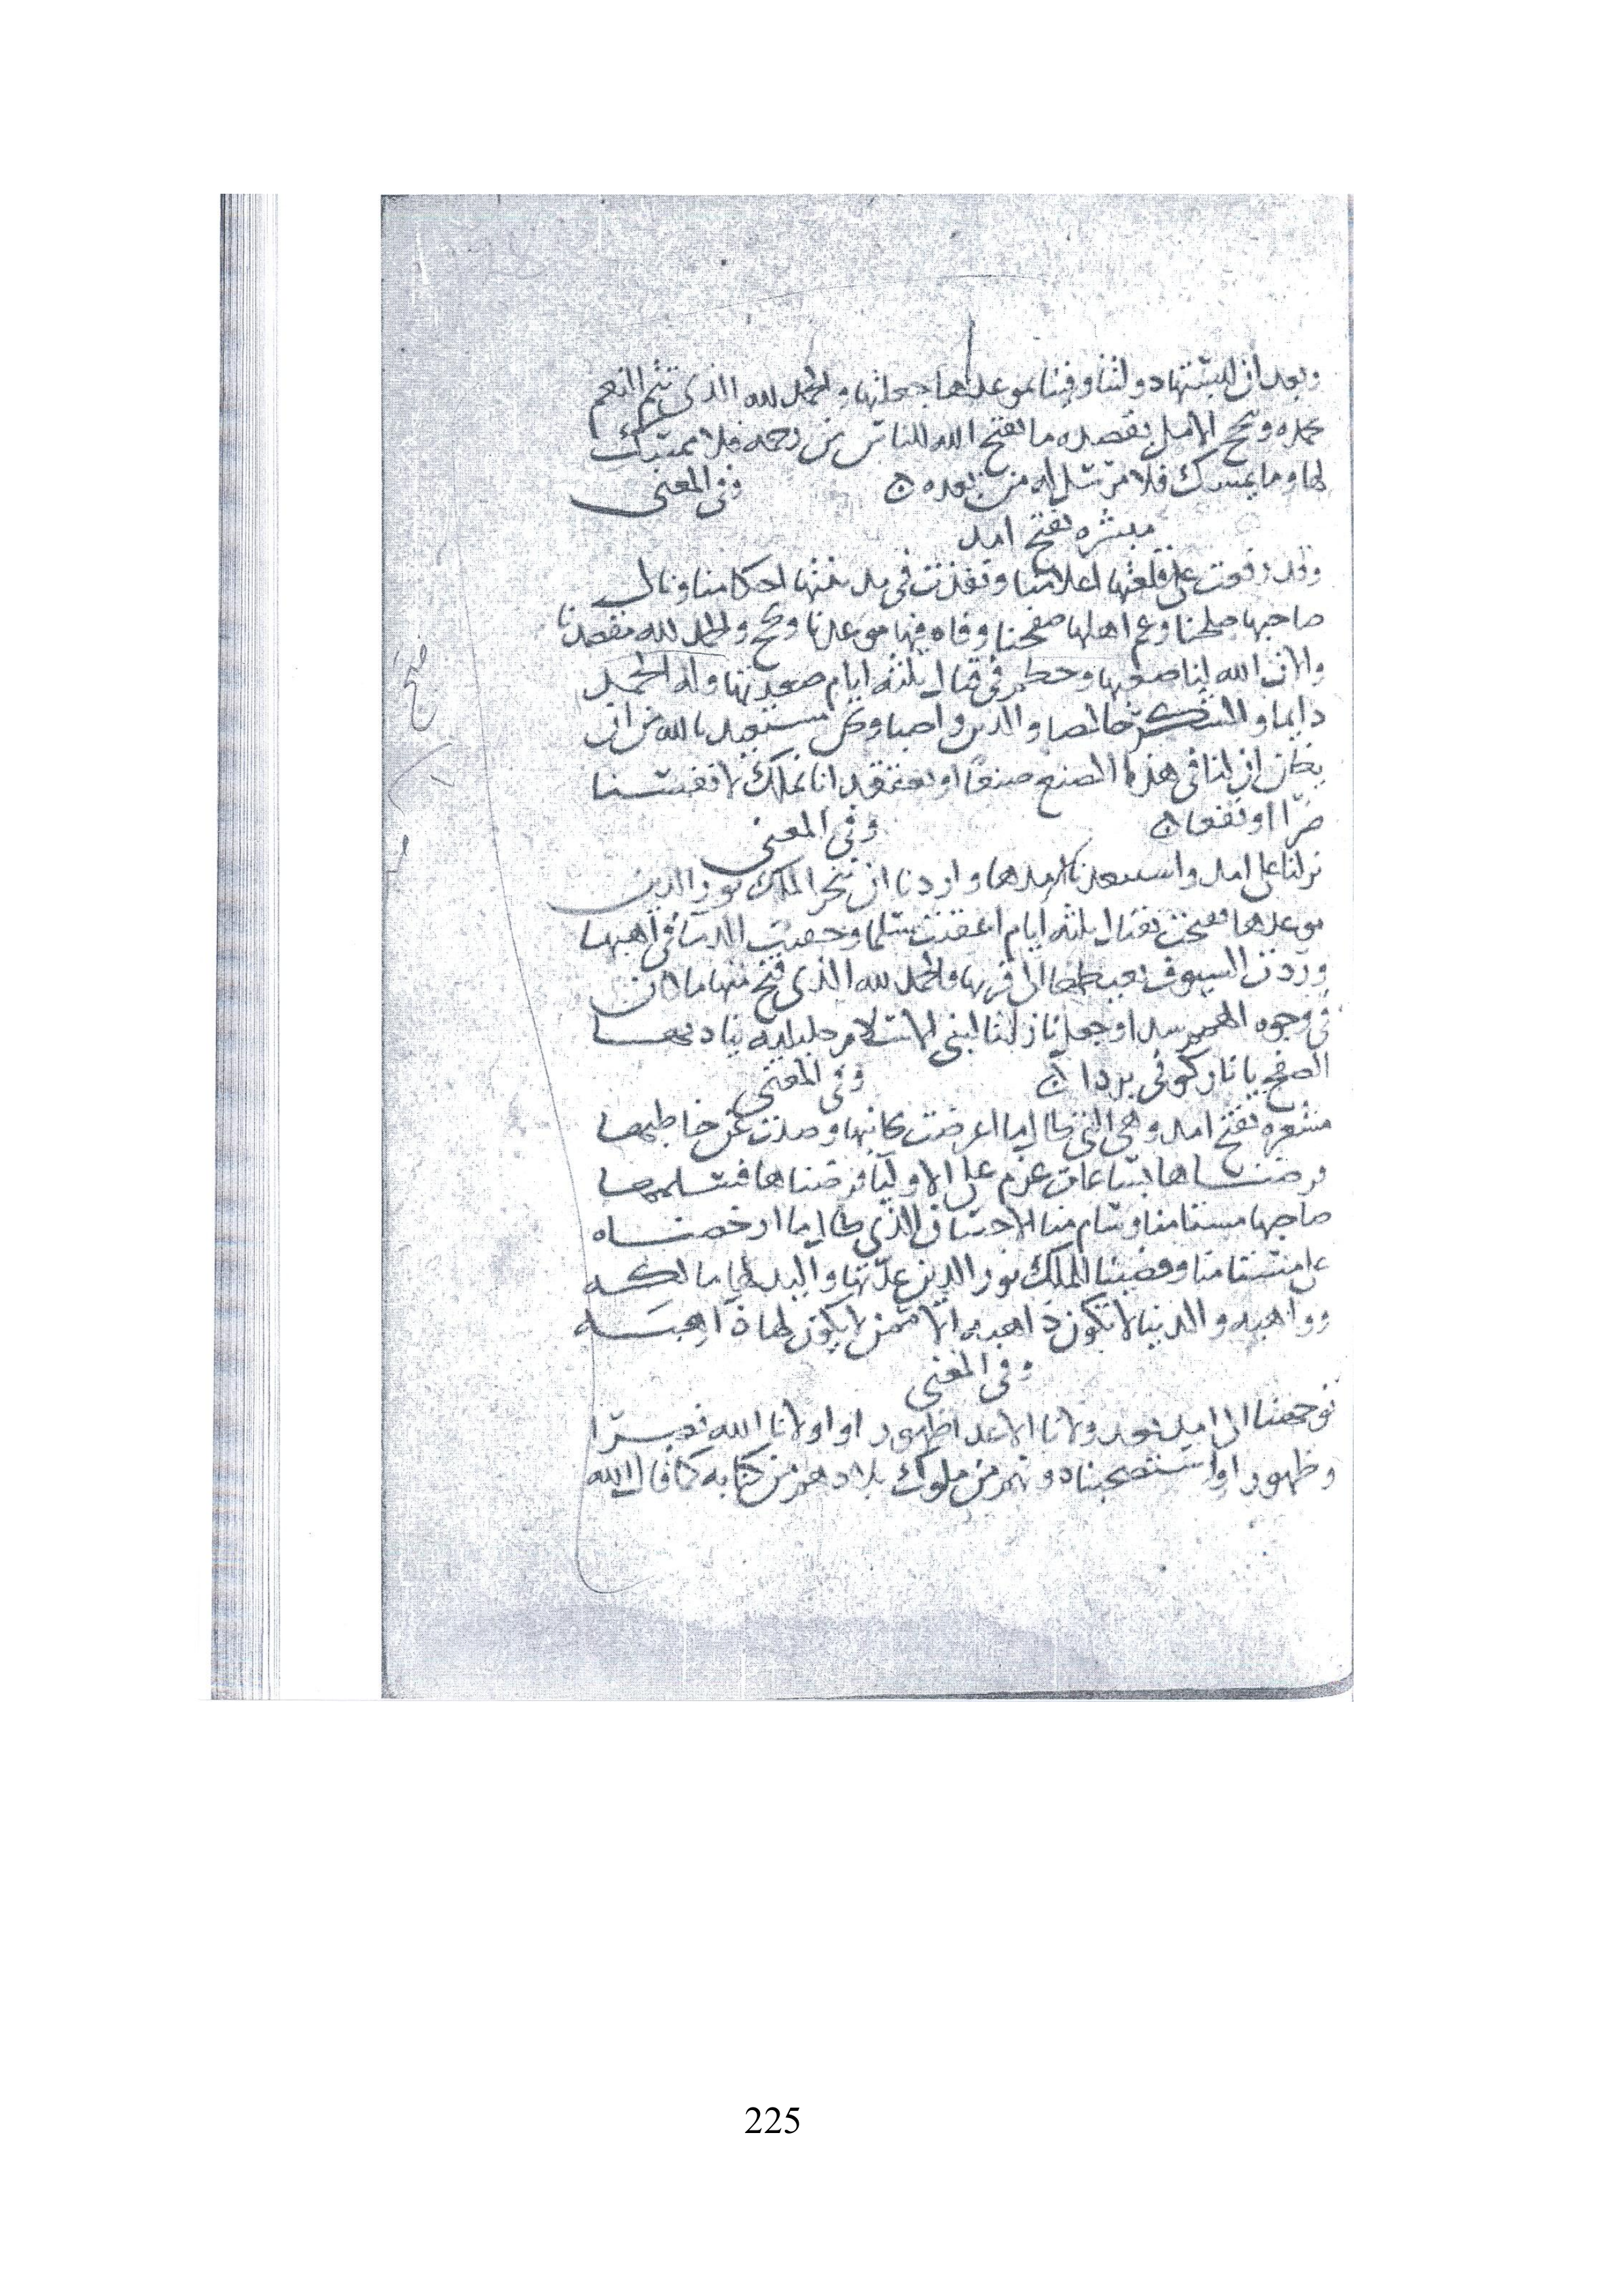 وبعد ان لبستها دولتنا وفينا بموعدها جعلتها والحمد لله الذي تتم النعم
بحمده ونجح الامل بقصده ما يفتح الله للناس من رحمه فلا ممسك
لها وما يمسك فلا مرسل له من بعده وفى المعنى
مبشره بفتح امد
وقد رفعت على قلعتها اعلامنا ونفذت فى مدينتها احكامنا ونال
صاحبها صلحنا وعم اهلها صفحنا وفاه فيها موعدنا ونجح والحمد لله مقصدنا
والان الله لنا صعبها وحطم فى قتال ثلثه ايام صعدتها وله الحمد
دايما والشكر خالصا والدين واصبا ونحن نستعيذ بالله من ان
يظن ان لنا فى هذا الصنع صنعا او يعتقد انا نملك لانفسنا
ضرا او نفعا وفى المعنى
نزلنا على امد واستبعدنا امدها واردنا ان ننجز الملك نور الدين
موعدها ففتحت بقتال ثلثه ايام اعقبت سلما وحقنت الدما فى اهبها
وردت السيوف الى قربها والحمد لله الذي فتح منها ما كان
فى وجوه سدا وجعل نازلنا لبنى يناديها
الصفح يا نار كونى بردا وفى المعنى
مشعره بفتح امد وهى التى طال ما اعرضت بجانبها وصدت عن خاطبها
فرضناها بساعات عزم على الاوليا فرضناها فتسلمها
صاحبها مستامنا وسام منا الاحسان الذي طال ما ارخصناه
على مستامنا وقضينا الملك نور الدين عدتها واليد لها مالكه
وواهبه والدنيا لا تكون ذاهبه الا ممن لا يكون لها ذاهبه
وفى المعنى
توجهنا الى امد بعد ولانا الاعدا ظهورا واولانا الله نصرا
وظهورا واستصحبنا دونهم من ملوك بلادهم من كتابه كما قال الله
225